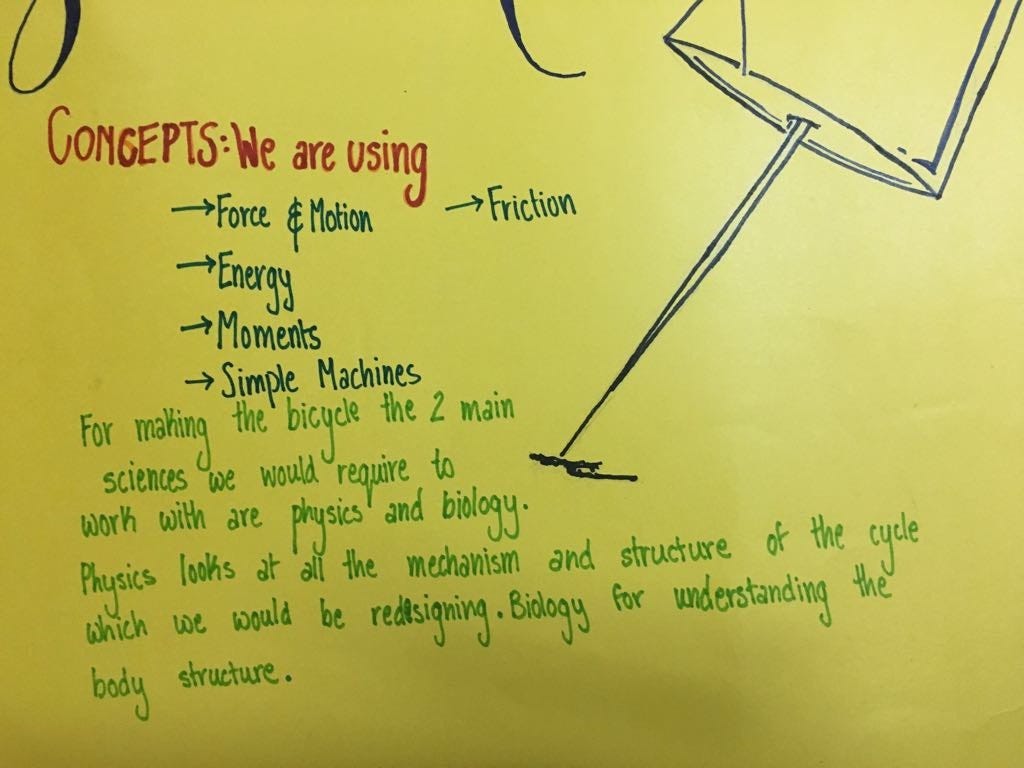 CONCEPTS: We are using
→ Force & Motion → Friction
→ Energy
→ Moments
→ Simple Machines
For making the bicycle the 2 main
sciences we would require to
work with are physics and biology.
Physics looks at all the mechanism and structure of the cycle
which we would be redesigning. Biology for understanding the
body structure.